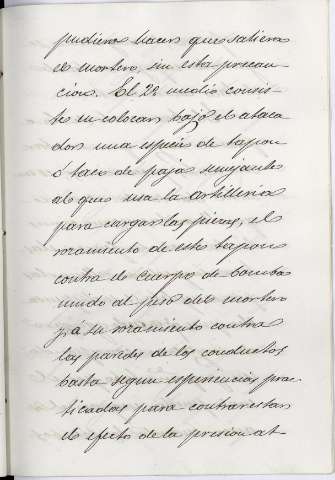 pudiera hacer que saliera
el mortero, sin esta precau-
cion. El 2º medio consis-
te en colocar bajo el ataca
dor una especie de tapon
ó taco de paja semejante
al que usa la artilleria
para cargar las piezas, el
rozamiento de este tapon
contra el cuerpo de bomba
unido al peso del mortero
y á su rozamiento contra
las paredes de los conductos
basta segun esperiencias prac
ticadas para contrarestar
el efecto de la presion at